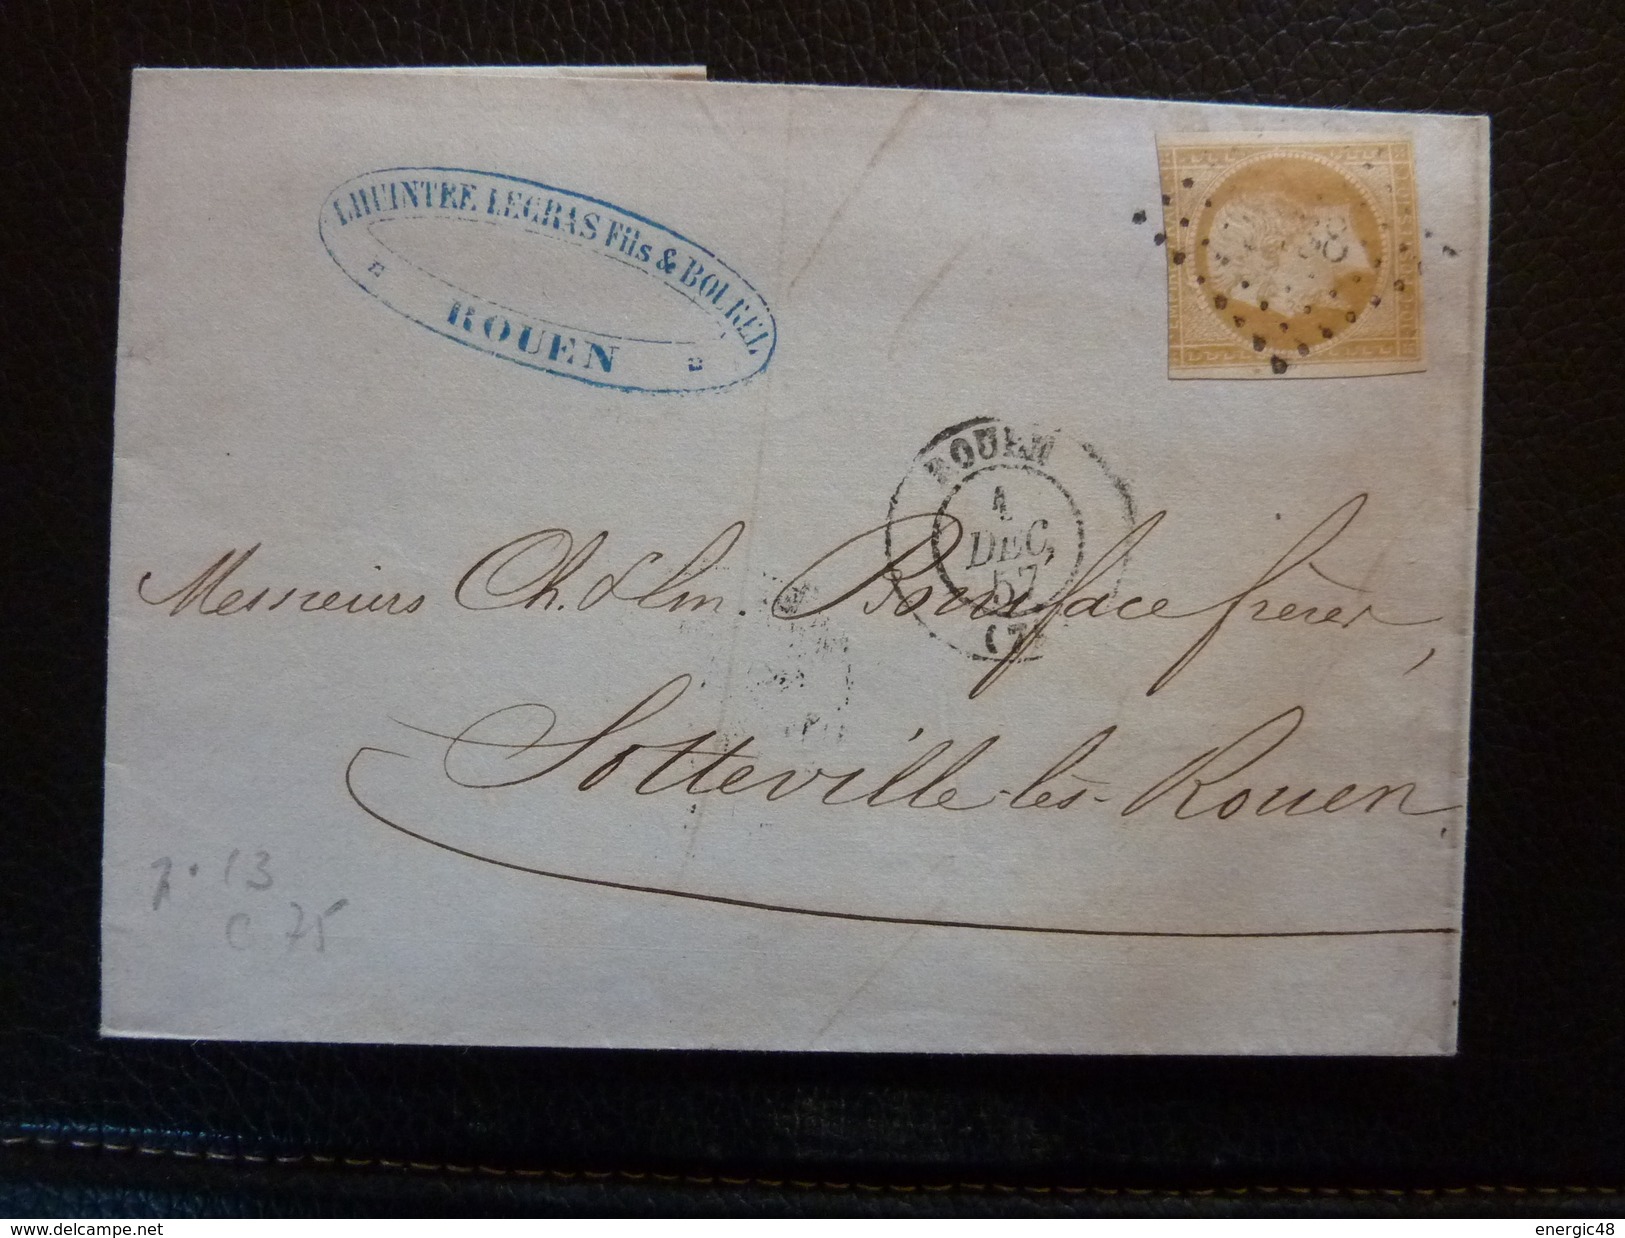 LHUINTRE LEGRAS Fils & BOUREL
ROUEN
ROUEN
1
DEC.
57
Messieurs Ch. & Em. Boniface frères,
Sotteville-lès-Rouen.
13
C 75
www.delcampe.net
energic48